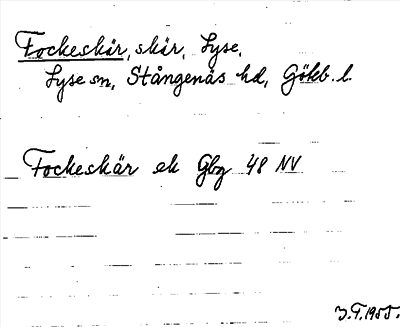 Fockeskär, skär, Lyse,
Lyse sn, Stångenäs hd, Gökb. l.
Fockeskär ek Gbg 48 NV
J.F. 1955.